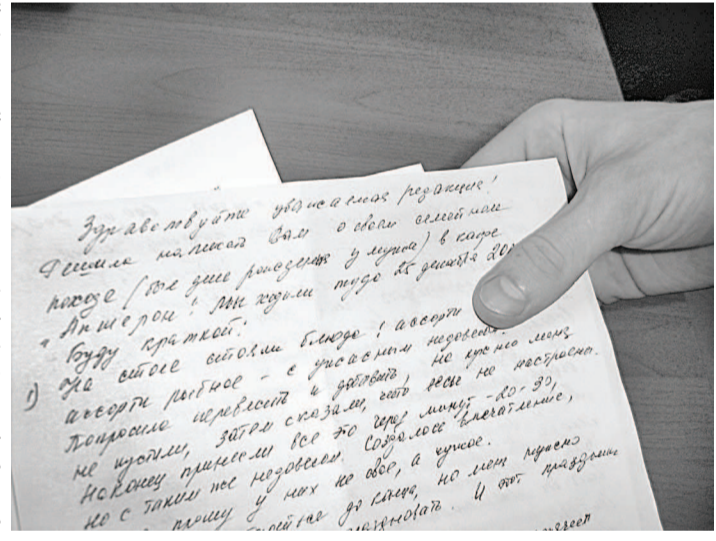 Здравствуйте уважаемая редакция!
Решила написать Вам о своем семейном
походе (был день рождения у мужа) в кафе
"Апшерон". Мы ходили туда 25 декабря 20
Буду краткой:
1) На столе стояли блюда: ассорти
ассорти рыбное - с ужасным недовесом.
Попросила перевесить и добавить, на кухню меня
не пустили, затем сказали, что весы не настроены.
Наконец принесли все это через минут -20-30,
но с таким же недовесом. Создалось впечатление,
у них не свое, а чужое.
до конца, но меня нужно
И этот праздник